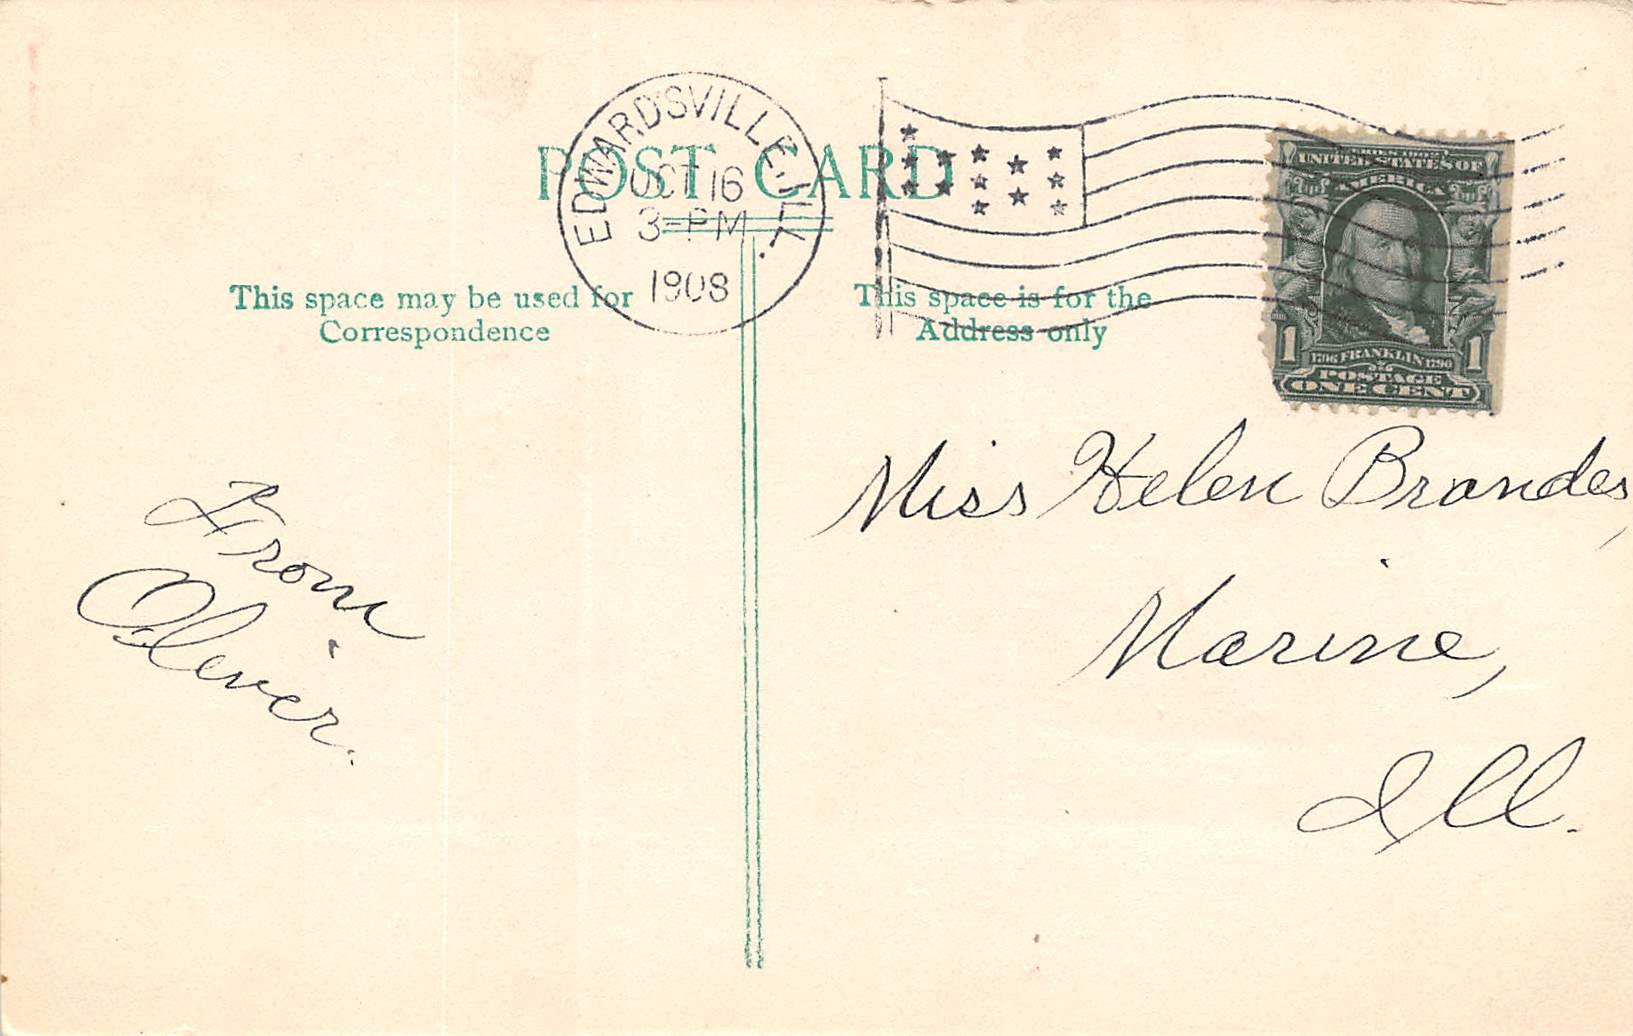 POST CARD
EDWARDSVILLE. ILL.
OCT 16
3-PM
1908
This space may be used for
Correspondence
This space is for the
Address only
UNITED STATES OF
AMERICA
1 1706 FRANKLIN 1790 1
POSTAGE
ONE CENT
From
Oliver.
Miss Helen Brandes,
Marine,
Ill.